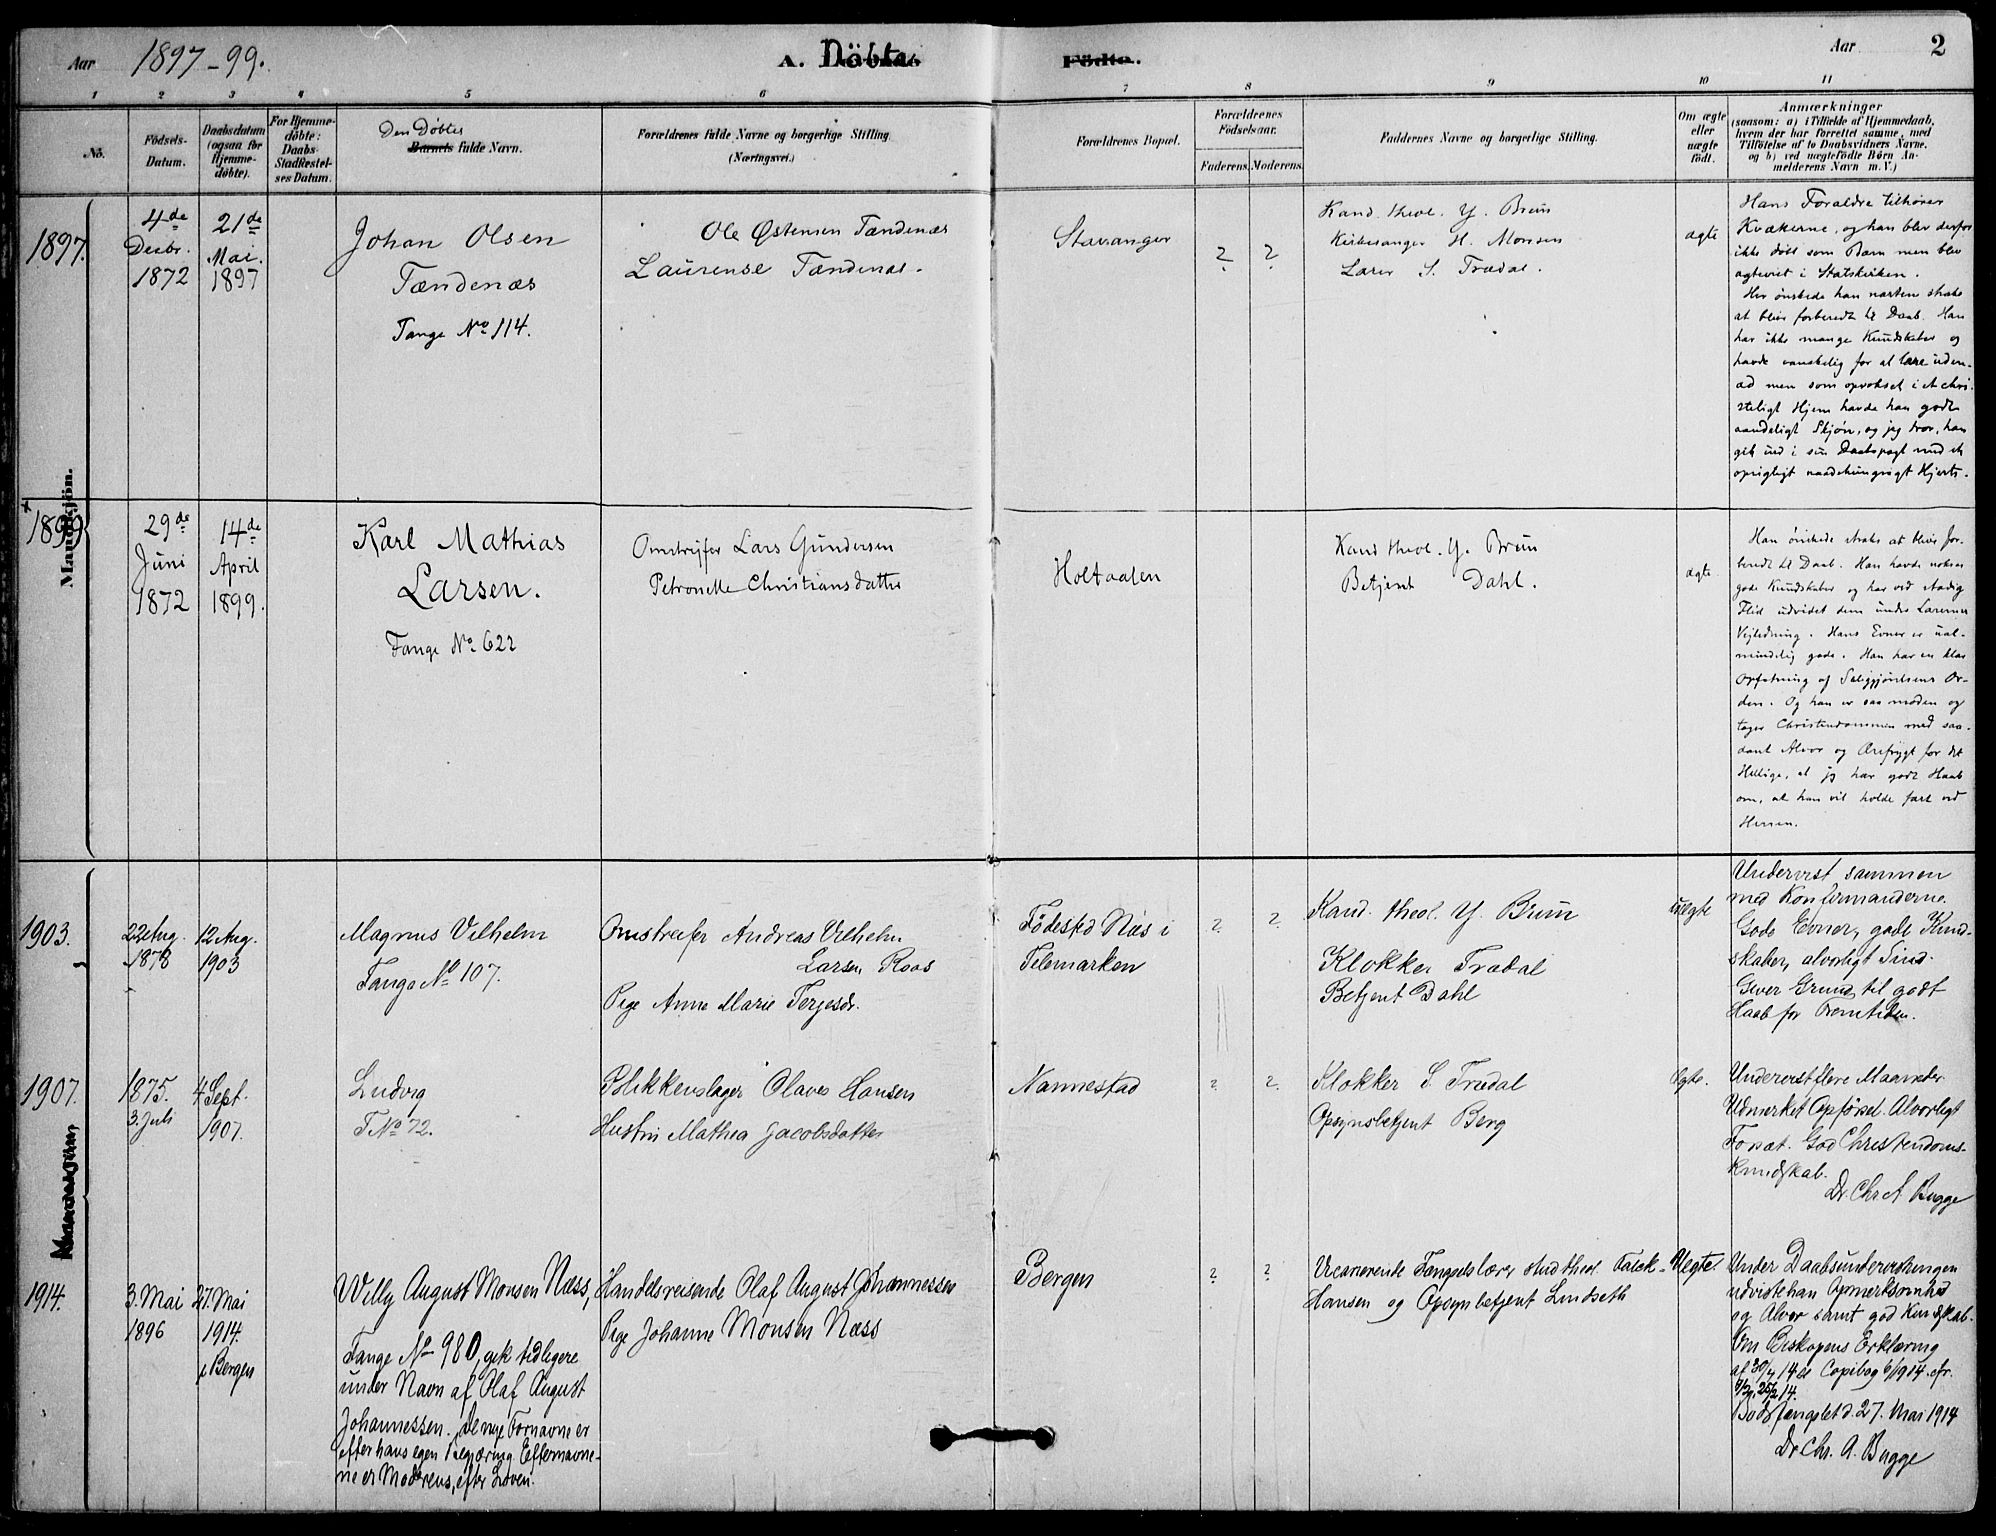 Aar 1897-99.
A. Döbte.
Födte.
Aar
2
1 2 3 4 5 6 7 8 9 10 11
No.
Födsels-
Datum.
Daabsdatum
(ogsaa for
Hjemme-
döbte).
For Hjemme-
döbte:
Daabs-
Stadfæstel-
ses Datum.
Den Døbtes
Barnets fulde Navn.
Forældrenes fulde Navne og borgerlige Stilling.
(Næringsvei.)
Forældrenes Bopæl.
Forældrenes
Födselsaar.
Faderens. Moderens.
Faddernes Navne og borgerlige Stilling.
Om ægte
eller
uægte
födt.
Anmærkninger
(saasom: a) i Tilfælde af Hjemmedaab,
hvem der har forrettet samme, med
Tilföielse af to Daabsvidners Navne,
og b) ved uægtefödte Börn An-
melderens Navn m. V.)
Mandkjön.
1897.
4de
Decbr.
1872
21de
Mai.
1897
Johan Olsen
Tændenæs
Fange No 114.
Ole Østensen Tændenæs
Laurense Tændenæs.
Stavanger
?
?
Kand. theol. Y. Brun
Kirkesanger H. Monsen
Lærer S. Trædal.
ægte
Hans Forældre tilhører
Kvækerne, og han blev derfor
ikke døbt som Barn men blev
agteviet i Statskirken.
Her ønskede han næsten straks
at blive forberedt til Daab. Han
har ikke mange Kundskaber og
havde vanskelig for at lære uden-
ad men som opvokset i et chri-
steligt Hjem havde han godt
aandeligt Skjøn, og jeg tror, han
gik ind i sin Daabspagt med et
oprigtigt naadehungrigt Hjerte.
1899
29de
Juni
1872
14de
April
1899.
Karl Mathias
Larsen.
Fange No 622
Omstreifer Lars Gundersen
Petronelle Christiansdatter
Holtaalen
Kand theol. Y. Brun
Betjent Dahl.
ægte
Han ønskede straks at blive for-
beredt til Daab. Han havde nokså
gode Kundskaber og har ved stadig
Flid udvidet dem under Lærernes
Vejledning. Hans Evner er ual-
mindelig gode. Han har en klar
Opfatning af Saliggjørelsens Or-
den. Og han er saa moden og
tager Christendommen med saa-
dant Alvor og Ærefrygt for det
Hellige, at jeg har godt Haab
om, at han vil holde fast ved
Herren.
1903.
22 Aug.
1878
12 Aug.
1903
Magnus Vilhelm
Fange No 107.
Omstreifer Andreas Vilhelm
Larsen Roos
Pige Anne Marie Terjesdr.
Fødested Næs i
Telemarken
?
?
Kand. theol. Y. Brun
Klokker Trædal
Betjent Dahl
uægte
Undervist sammen
med Konfirmanderne.
Gode Evner, gode Kund-
skaber, alvorligt Sind.
Giver Grund til godt
Haab for Fremtiden.
1907.
1875.
3. Juli
4 Sept.
1907.
Ludvig
F No 72.
Blikkenslager Olaves Hansen
Hustru Mathea Jacobsdatter
Nannestad
?
?
Klokker S. Trædal
Opsynsbetjent Berg
Ægte.
Undervist flere Maaneder.
Udmerket Opførsel. Alvorligt
Forsæt. God Christendoms-
kundskab.
Dr. Chr A Bugge
1914.
3. Mai
1896
27. Mai
1914.
i Bergen
Willy August Monsen Næss,
Fange No 980, gik tidligere
under Navn af Olaf August
Johannessen. De nye Fornavne er
efter hans egen Begjæring Efternavne-
ne er Moderens, efter Loven.
Handelsreisende Olaf August Johannessen
Pige Johanne Monsen Næss
Bergen
?
?
Vicarierende Fængselslærer stud theol. Falck-
Hansen og Opsynbetjent Lindseth
Uegte
Under Daabsundervisningen
udviste han Opmerksomhed
og Alvor samt god Kundskab.
Om Biskopens Erklæring
af 30/4 14 se Copibog 6/1914. cfr.
25/2 14.
Bodsfængslet d. 27. Mai 1914
Dr. Chr. A. Bugge